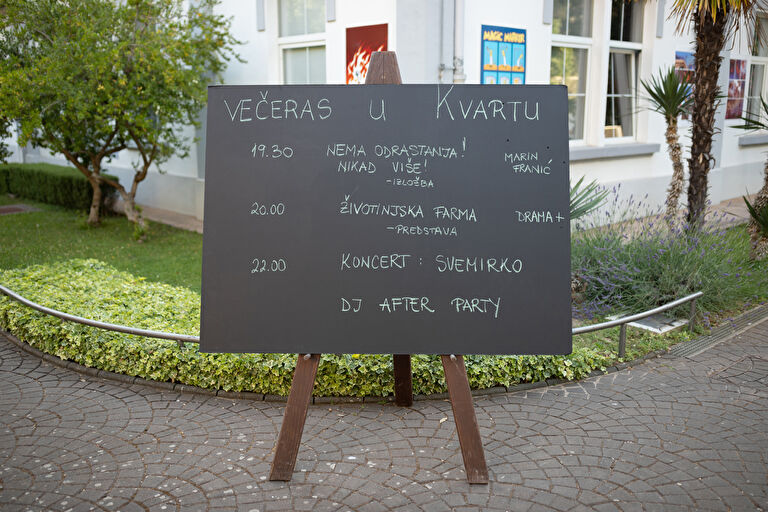 MAGIC MARKER
VEČERAS U KVARTU
19.30 NEMA ODRASTANJA! MARIN
NIKAD VIŠE! FRANIĆ
-IZLOŽBA
20.00 ŽIVOTINJSKA FARMA DRAMA+
-PREDSTAVA
22.00 KONCERT: SVEMIRKO
DJ AFTER PARTY